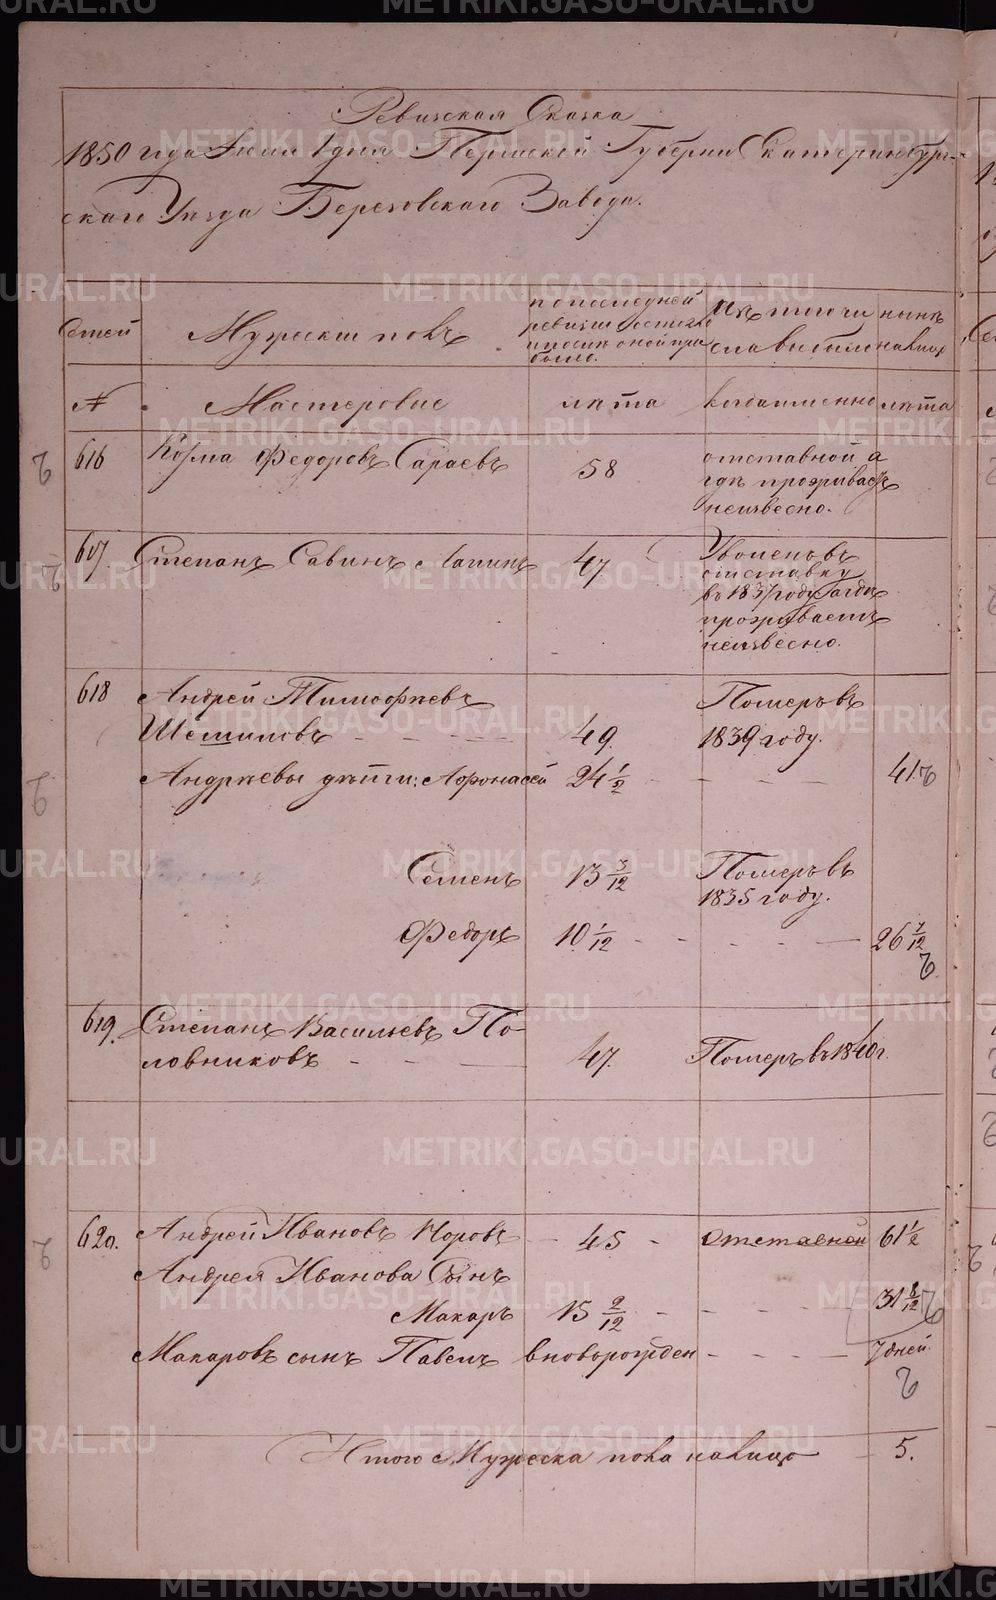 Ревижская Сказка
1850 года Июля 1 дня Пермской Губернии Екатеринбург-
скаго Уезда Березовскаго Завода.
Семей
Мужеский полъ
по последней
ревизии состояло
и после оной при
было.
Изъ того числа выбыло
ныне
налицо
№
Мастеровые
лѣта
когда именно
лѣта
616
Козма Федоровъ Сараевъ
58
отставной а
где проживаетъ
неизвесно.
617.
Степанъ Савинъ Лапинъ
47
Уволенъ въ
отставку
въ 1837 году а где
проживаетъ
неизвесно.
618
Андрей Тимофѣевъ
Шемиловъ
49.
Померъ въ
1839 году.
Андрѣевы дѣти: Афонасей
24 1/2
41.
Семенъ
13 3/12
Померъ въ
1835 году.
Федоръ
10 1/12
26 7/12
619.
Степанъ Васильевъ По-
ловниковъ
47.
Померъ въ 1840 г.
620.
Андрей Ивановъ Норовъ
45
Отставной
61 1/2
Андрея Иванова Сынъ
Макаръ
15 2/12
31 8/12
Макаровъ сынъ Павелъ
вновьрожден
7 дней.
Итого Мужеска пола налицо
5.
METRIKI.GASO-URAL.RU